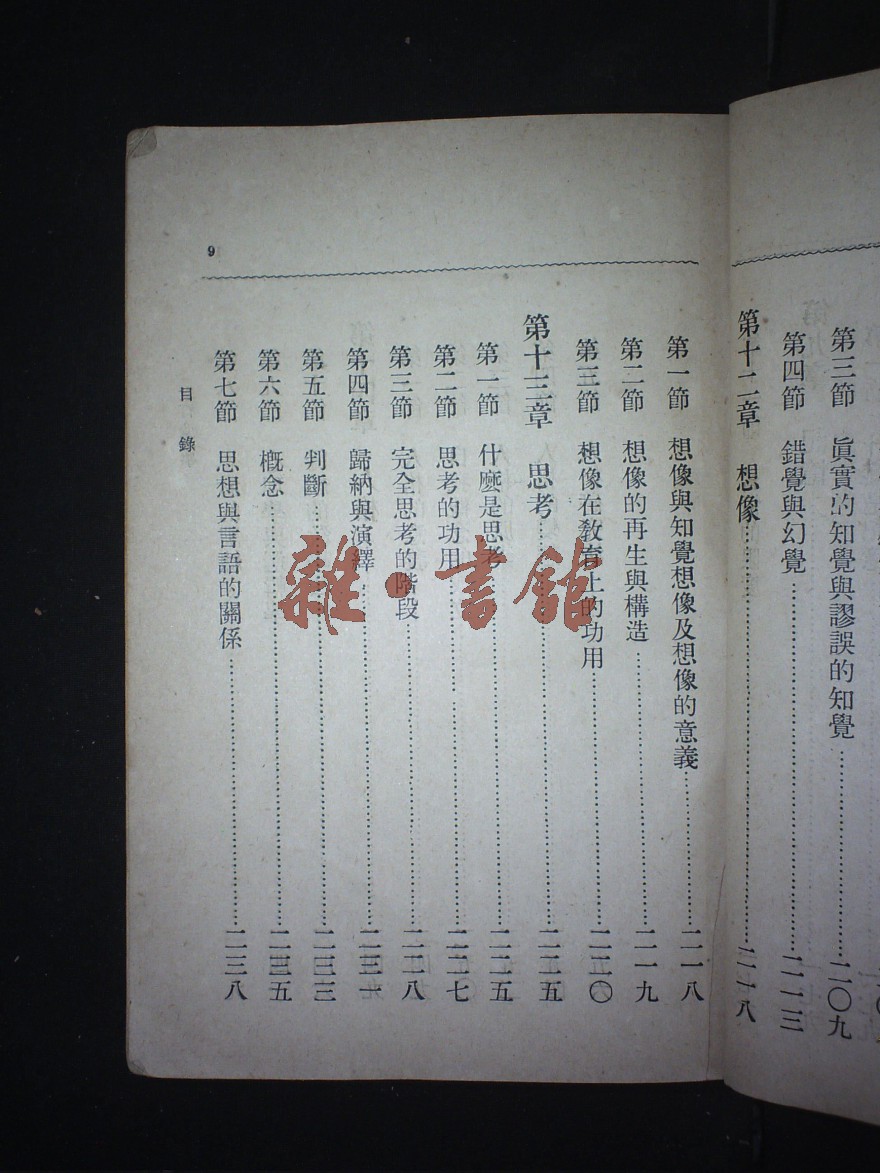 第三節 眞實的知覺與謬誤的知覺……二〇九
第四節 錯覺與幻覺……二一三
第十二章 想像……二一八
第一節 想像與知覺想像及想像的意義……二一八
第二節 想像的再生與構造……二一九
第三節 想像在敎育上的功用……二二〇
第十三章 思考……二二五
第一節 什麼是思考……二二五
第二節 思考的功用……二二七
第三節 完全思考的階段……二二八
第四節 歸納與演繹……二三一
第五節 判斷……二三三
第六節 槪念……二三五
第七節 思想與言語的關係……二三八
目錄
9
雜·書館